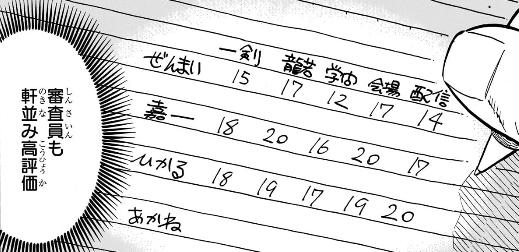 一剣 龍若 学内 会場 配信
ぜんまい 15 17 12 17 14
嘉一 18 20 16 20 17
ひかる 18 19 17 19 20
あかね
審査員も
軒並み高評価